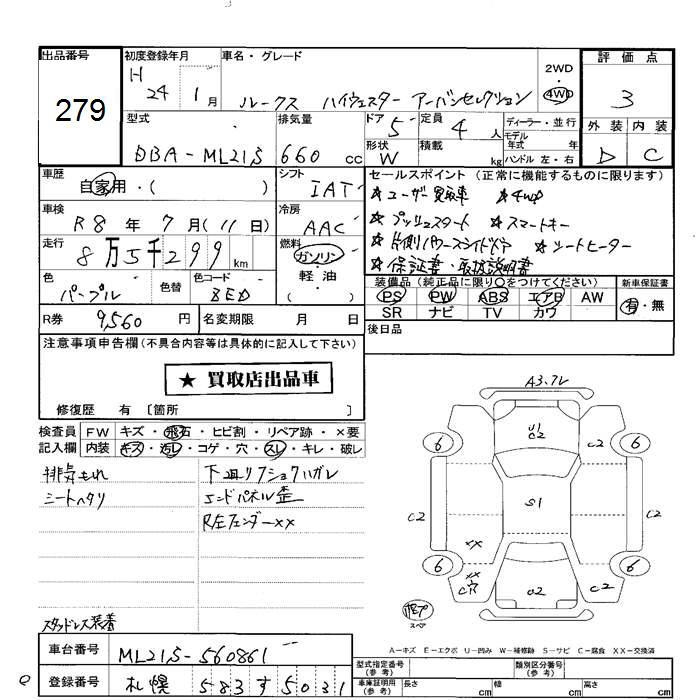 出品番号
279
初度登録年月
H 24年 1月
車名・グレード
ルークス ハイウェスター アーバンセレクション
2WD
・
4WD
評価点
3
外装 内装
D C
型式
DBA-ML21S
排気量
660 cc
ドア 5
定員 4 人
ディーラー・並行
モデル年式 年
形状 W
積載 kg
ハンドル 左・右
車歴
自家用・( )
シフト
IAT
セールスポイント (正常に機能するものに限ります)
★ユーザー買取車 ★4WD
★プッシュスタート ★スマートキー
★片側パワースライドドア ★シートヒーター
★保証書・取扱説明書
車検
R8年 7月(11日)
冷房
AAC
走行
8万5千299 km
燃料
ガソリン
・軽油・
( )
色
パープル
色替
色コード
ZED
装備品 (純正品に限り○をつけてください)
PS PW ABS エアB AW
SR ナビ TV カワ
新車保証書
有・無
R券 9,560 円
名変期限 月 日
後日品
注意事項申告欄(不具合内容等は具体的に記入して下さい)
★ 買取店出品車
修復歴 有 〔箇所 〕
検査員記入欄
FW キズ・飛石・ヒビ割・リペア跡・×要
内装 キズ・汚レ・コゲ・穴・スレ・キレ・破レ
排気もれ
シートヘタリ
下廻リフショクハガレ
エンドパネル歪
R左フェンダーxx
スタッドレス装着
A3.7V
U1
C2
C2
6
6
S1
C2
C2
xx
6
6
xx
C穴
U2
C2
スペア
A-キズ E-エクボ U-凹み W-補修跡 S-サビ C-腐食 XX-交換済
車台番号
ML21S-560861
登録番号
札幌 583 す 5031
型式指定番号
(参考)
類別区分番号
(参考)
車庫証明用
(参考)
長さ cm
幅 cm
高さ cm